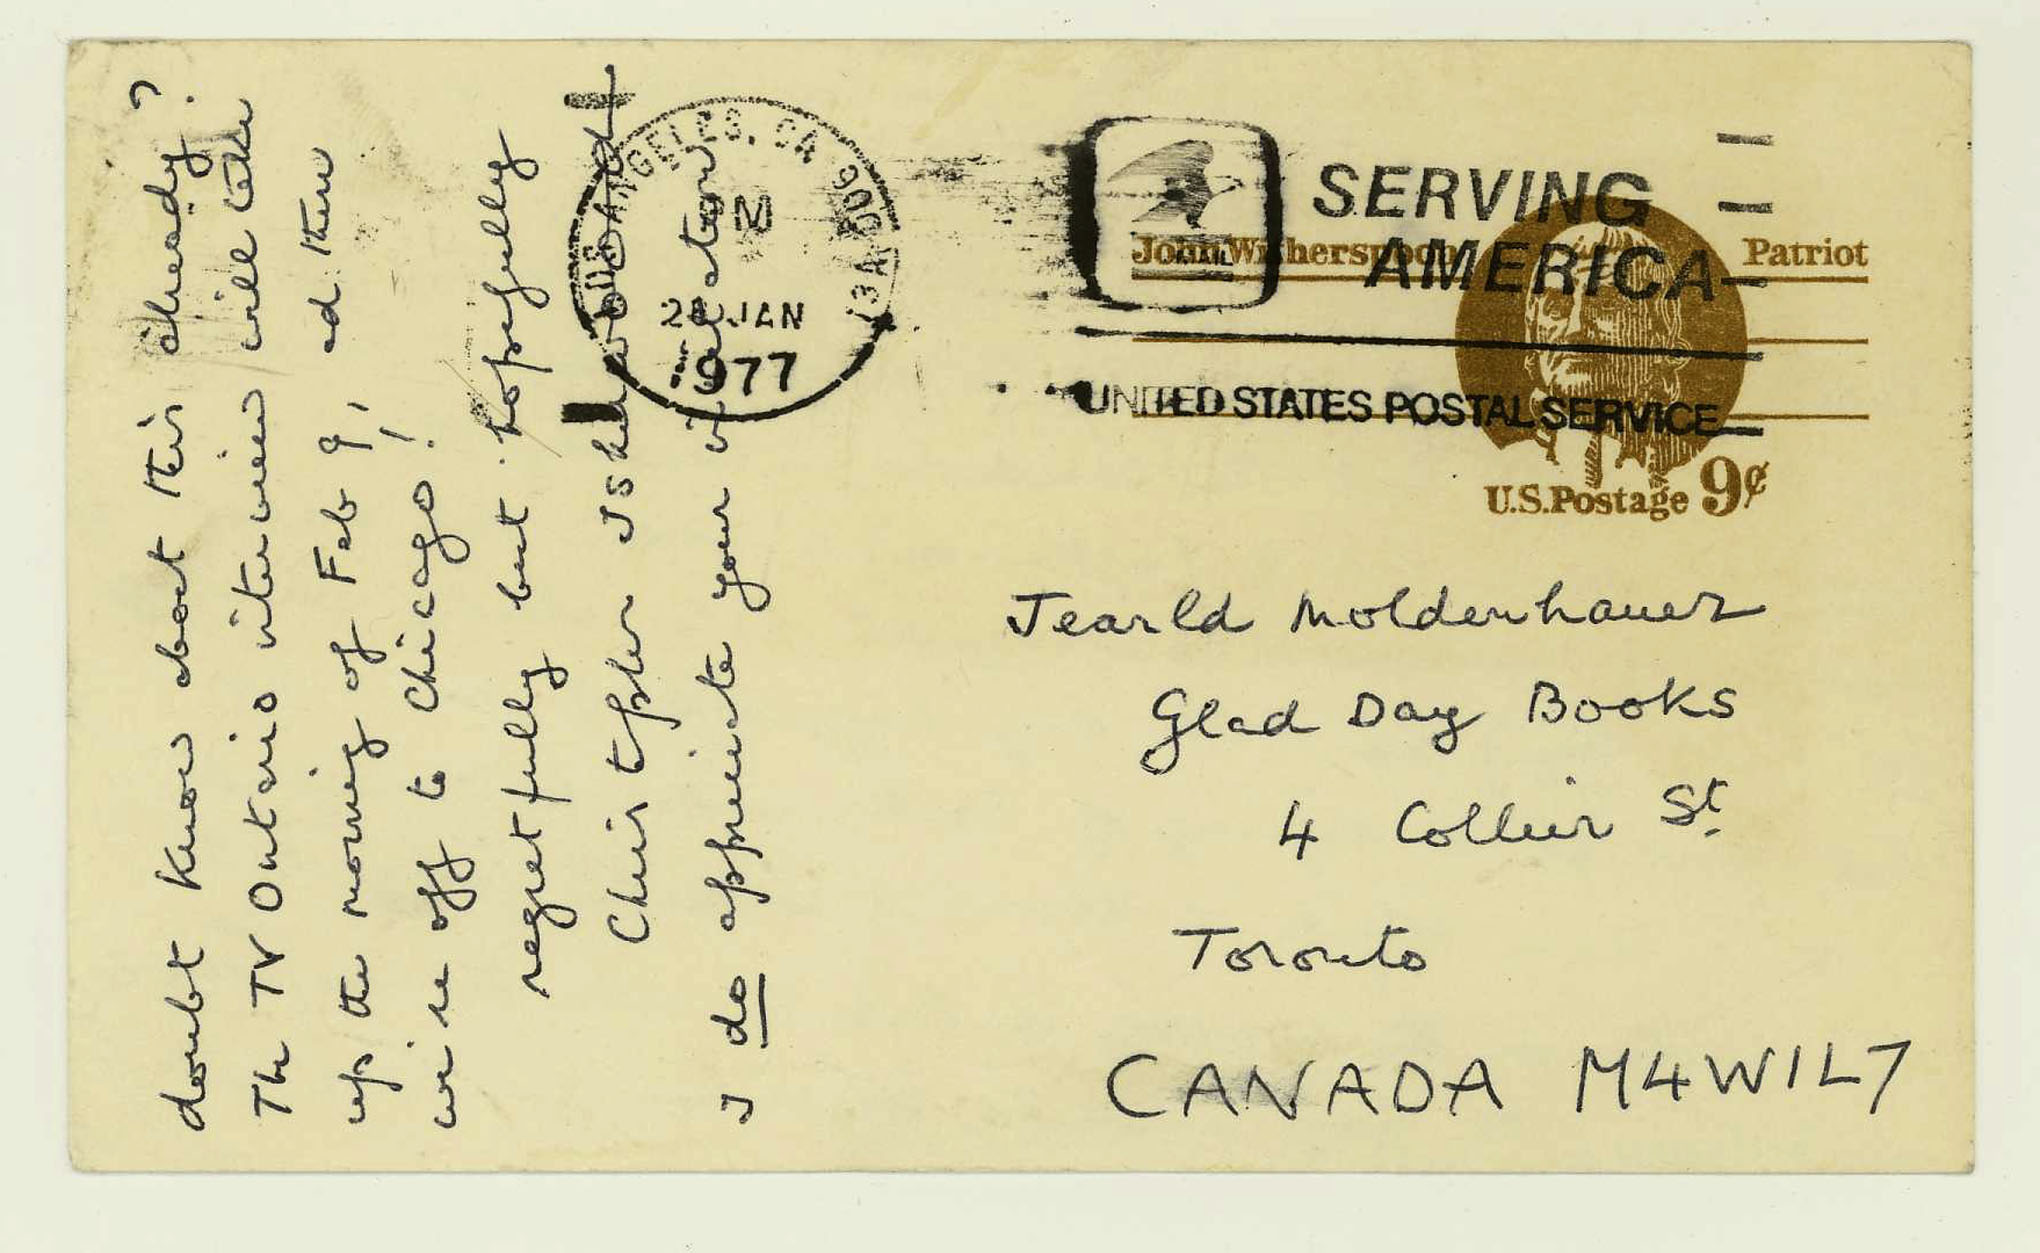 doubt know about this already?
The TV Ontario interview will take
up the morning of Feb 9, and then
we're off to Chicago!
regretfully but hopefully
Christopher Isherwood
I do appreciate your invitation
LOS ANGELES, CA 900
PM
JAN
1977
SERVING
AMERICA
UNITED STATES POSTAL SERVICE
MAIL
John Witherspoon Patriot
U.S. Postage 9¢
Jearld Moldenhauer
Glad Day Books
4 Collier St.
Toronto
CANADA M4W1L7